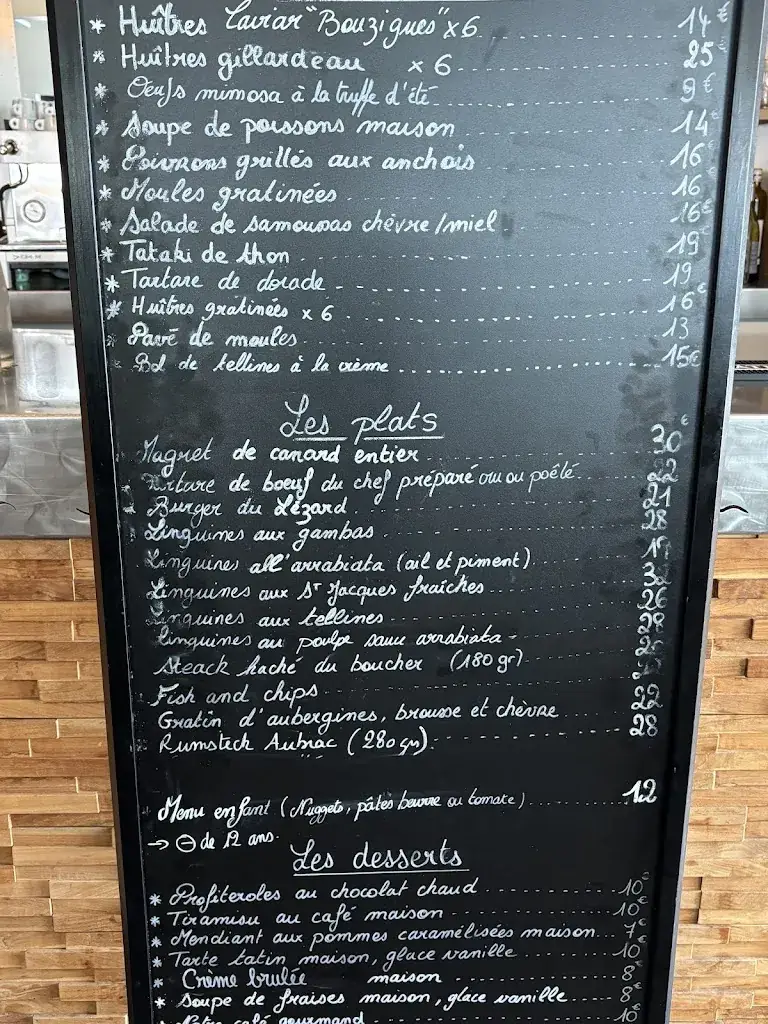 * Huîtres Caviar "Bouzigues" x6 14€
* Huîtres gillardeau x 6 25€
* Oeufs mimosa à la truffe d'été 9€
* Soupe de poissons maison 14€
* Poivrons grillés aux anchois 16€
* Moules gratinées 16€
* Salade de samoussas chèvre/miel 16€
* Tataki de thon 19€
* Tartare de dorade 19
* Huîtres gratinées x 6 16€
* Pavé de moules 13
Bol de tellines à la crème 15€
Les plats
Magret de canard entier 30€
de boeuf du chef préparé ou poêlé 22
Burger du Lézard 21
Linguines aux gambas 28
Linguines all'arrabiata (ail et piment)
Linguines aux St Jacques fraîches
Linguines aux tellines 26
Linguines au poulpe sauce arrabiata 28
Steack haché du boucher (180 gr)
Fish and chips
Gratin d'aubergines, brousse et chèvre 22
Rumsteck Aubrac (280 gr) 28
Menu enfant (Nuggets, pâtes beurre ou tomate) 12
→ ⊖ de 12 ans.
Les desserts
* Profiteroles au chocolat chaud 10€
* Tiramisu au café maison 10€
* Mendiant aux pommes caramélisées maison 7€
* Tarte tatin maison, glace vanille 10€
* Crème brulée maison 8€
* Soupe de fraises maison, glace vanille 8€
* Notre café gourmand 10€